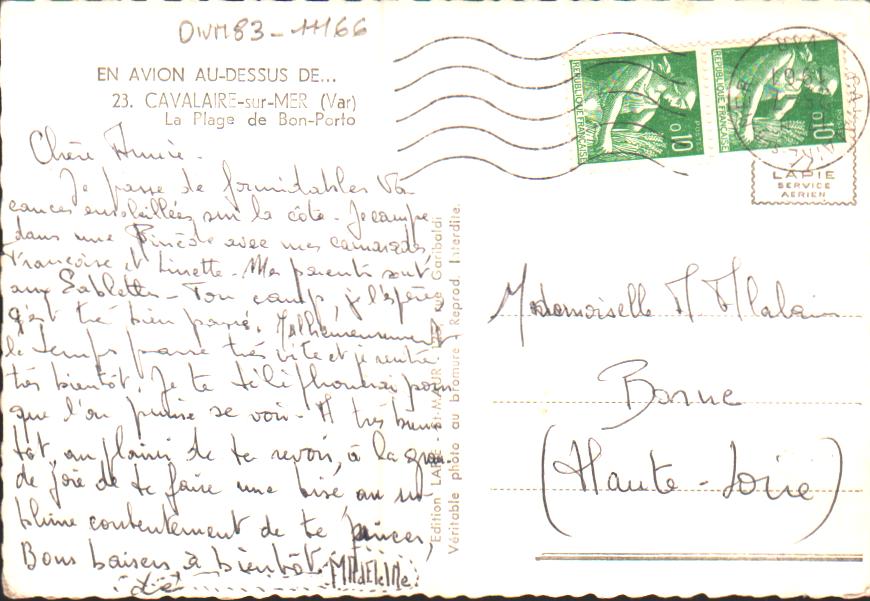 DWM83-11166
EN AVION AU-DESSUS DE...
23. CAVALAIRE-sur-MER (Var)
La Plage de Bon-Porto
Chère Annie.
Je passe de formidables va
cances ensoleillées sur la côte. Je campe
dans une Pinède avec mes camarades
Françoise et Linette. Mes parents sont
aux Sablettes. Ton camp, je l'espère
s'est très bien passé. Malheureusement
le temps passe très vite et je rentre
très bientôt. Je te téléphonerai pour
que l'on puisse se voir. A très bien
tôt, au plaisir de te revoir, à la gran-
de joie de te faire une bise au su-
blime contentement de te pincer,
Bons baisers, à bientôt.
MADELEINE
Edition LAPIE - St-MAUR rue Garibaldi
Véritable photo au bromure - Reprod. Interdite.
REPUBLIQUE FRANÇAISE
POSTES
0,10
REPUBLIQUE FRANÇAISE
POSTES
0,10
LAPIE
SERVICE
AERIEN
Mademoiselle A Malain
Borne
(Haute-Loire)